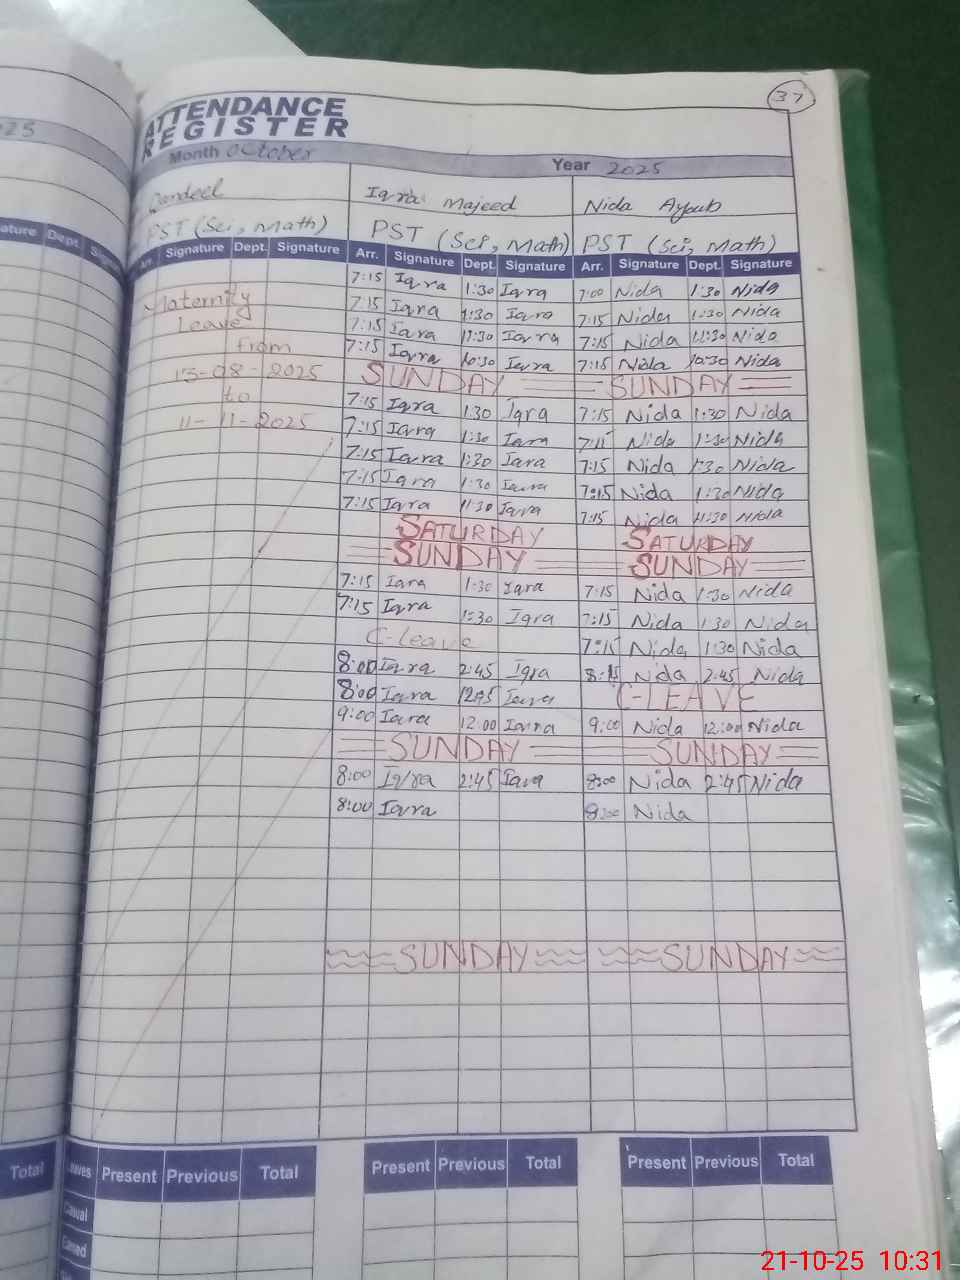 37
ATTENDANCE
REGISTER
Month October Year 2025
Qandeel Iqra Majeed Nida Ayub
PST (Sci, Math) PST (Sci, Math) PST (Sci, Math)
Arr. Signature Dept. Signature Arr. Signature Dept. Signature Arr. Signature Dept. Signature
7:15 Iqra 1:30 Iqra 7:00 Nida 1:30 Nida
Maternity 7:15 Iqra 1:30 Iqra 7:15 Nida 1:30 Nida
Leave 7:15 Iqra 11:30 Iqra 7:15 Nida 11:30 Nida
from 7:15 Iqra 10:30 Iqra 7:15 Nida 10:30 Nida
13-08-2025 SUNDAY SUNDAY
to 7:15 Iqra 1:30 Iqra 7:15 Nida 1:30 Nida
11-11-2025 7:15 Iqra 1:30 Iqra Nida 1:30 Nida
7:15 Iqra 1:30 Iqra 7:15 Nida 1:30 Nida
7:15 Iqra 1:30 Iqra 7:15 Nida 1:30 Nida
7:15 Iqra 11:30 Iqra 7:15 Nida 11:30 Nida
SATURDAY SATURDAY
SUNDAY SUNDAY
7:15 Iqra 1:30 Iqra 7:15 Nida 1:30 Nida
7:15 Iqra 1:30 Iqra 7:15 Nida 1:30 Nida
C-Leave 7:15 Nida 1:30 Nida
8:00 Iqra 2:45 Iqra Nida 2:45 Nida
8:00 Iqra Iqra C-LEAVE
9:00 Iqra 12:00 Iqra 9:00 Nida 12:00 Nida
SUNDAY SUNDAY
8:00 Iqra 2:45 Iqra 8:00 Nida 2:45 Nida
8:00 Iqra 8:00 Nida
SUNDAY SUNDAY
Total Leaves Present Previous Total Present Previous Total Present Previous Total
Casual
Earned
21-10-25 10:31